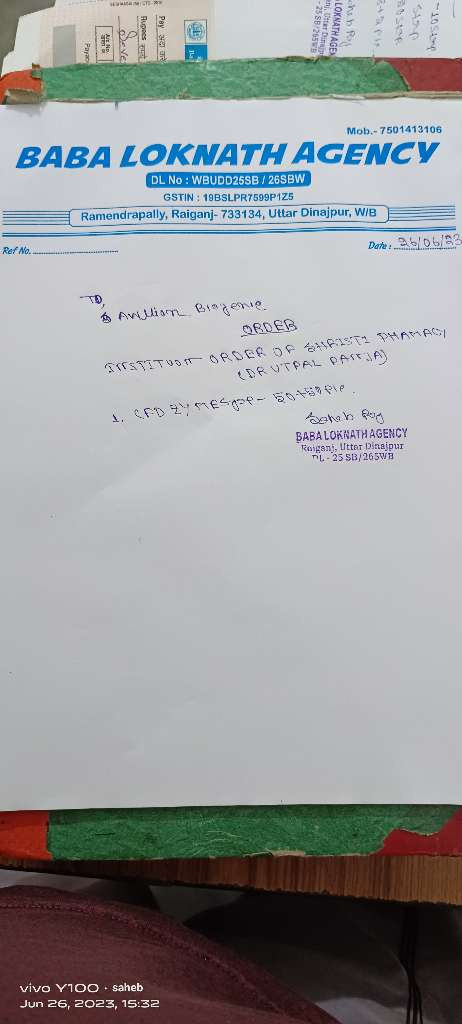 Mob.- 7501413106
BABA LOKNATH AGENCY
DL No : WBUDD25SB / 26SBW
GSTIN : 19BSLPR7599P1Z5
Ramendrapally, Raiganj- 733134, Uttar Dinajpur, W/B
Ref No.
Date : 26/06/23
TO,
Avillion Biogenie
ORDER
ORDER OF SHRISTI PHAMACY
(DR UTPAL
1. CFD ZYME 50+50 PIP.
Saheb Roy
BABA LOKNATH AGENCY
Raiganj, Uttar Dinajpur
DL - 25 SB/265WB
Pay
Rupees
vivo Y100 · saheb
Jun 26, 2023, 15:32